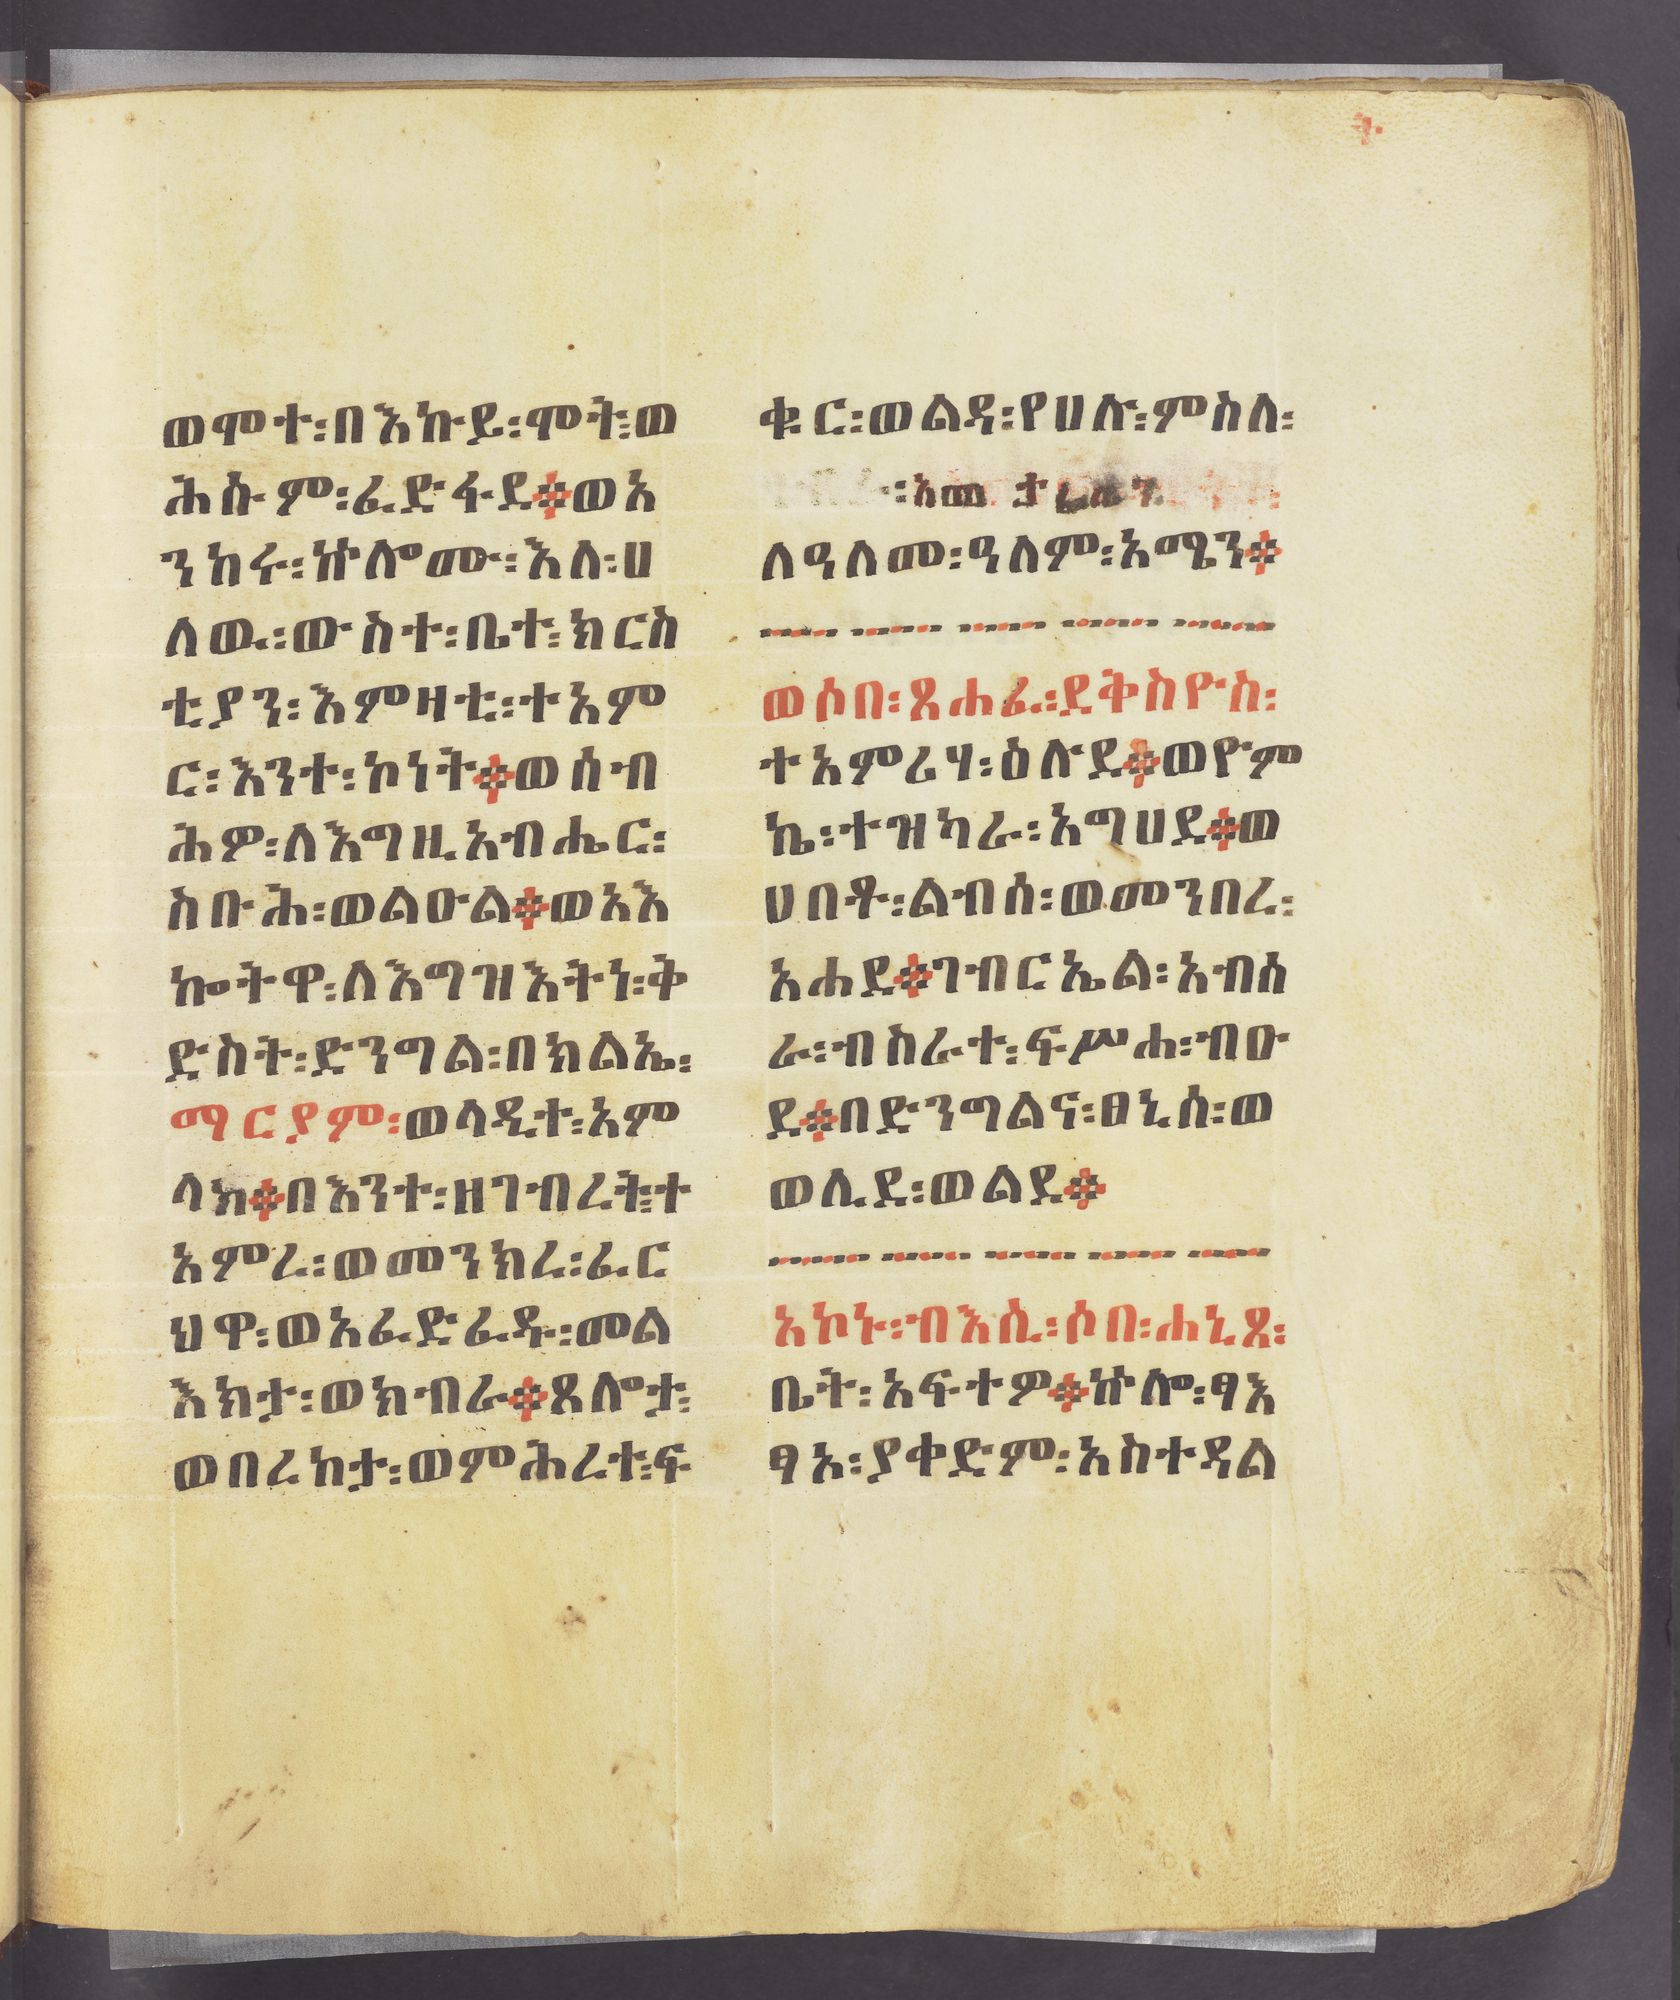 ት
ወሞተ፡በእኩይ፡ሞት፡ወ
ሕሱም፡ፈድፋደ፨ወአ
ንከሩ፡ኵሎሙ፡እለ፡ሀ
ለዉ፡ውስተ፡ቤተ፡ክርስ
ቲያን፡እምዛቲ፡ተአም
ር፡እንተ፡ኮነት፨ወሰብ
ሕዎ፡ለእግዚአብሔር፡
ስቡሕ፡ወልዑል፨ወአእ
ኰትዋ፡ለእግዝእትነ፡ቅ
ድስት፡ድንግል፡በክልኤ፡
ማርያም፡ወላዲተ፡አም
ላክ፨በእንተ፡ዘገብረት፡ተ
አምረ፡ወመንክረ፡ፈር
ህዋ፡ወአፈድፈዱ፡መል
እክታ፡ወክብራ፨ጸሎታ፡
ወበረከታ፡ወምሕረተ፡ፍ
ቁር፡ወልዳ፡የሀሉ፡ምስለ፡
ለዓለመ፡ዓለም፡አሜን፨
ወሶበ፡ጸሐፈ፡ደቅስዮስ፡
ተአምሪሃ፡ስሉደ፨ወዮም
ኬ፡ተዝካራ፡አግሀደ፨ወ
ሀበቶ፡ልብሰ፡ወመንበረ፡
አሐደ፨ገብርኤል፡አብሰ
ራ፡ብስራተ፡ፍሥሐ፡ብዑ
ደ፨በድንግልና፡ፀኒሰ፡ወ
ወሊደ፡ወልደ፨
አኮኑ፡ብእሲ፡ሶበ፡ሐኒጸ፡
ቤት፡አፍተዎ፨ኵሎ፡ፃእ
ፃአ፡ያቀድም፡አስተዳል